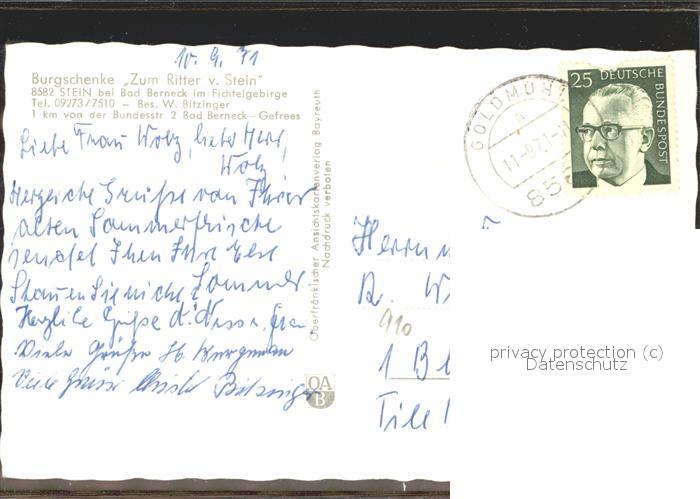 10. 9. 71
Burgschenke „Zum Ritter v. Stein"
8582 STEIN bei Bad Berneck im Fichtelgebirge
Tel. 09273/7510 – Bes. W. Bitzinger
1 km von der Bundesstr. 2 Bad Berneck – Gefrees
Liebe Frau Wolz, lieber Herr,
Wolz
Herzliche Grüße von Ihrer
alten Sommerfrische
sendet Ihnen Ihre
Staunen Sie nicht
Sommer
Herzliche Grüße
Viele Grüße H. Bergman
Viele Grüsse Bitzinger
Oberfränkischer Ansichtskartenverlag Bayreuth
Nachdruck verboten
OA
B
GOLDMÜH
a
11-9.71-
858
25 DEUTSCHE
BUNDESPOST
Herrn
R. W
910
1 B
Till
privacy protection (c)
Datenschutz